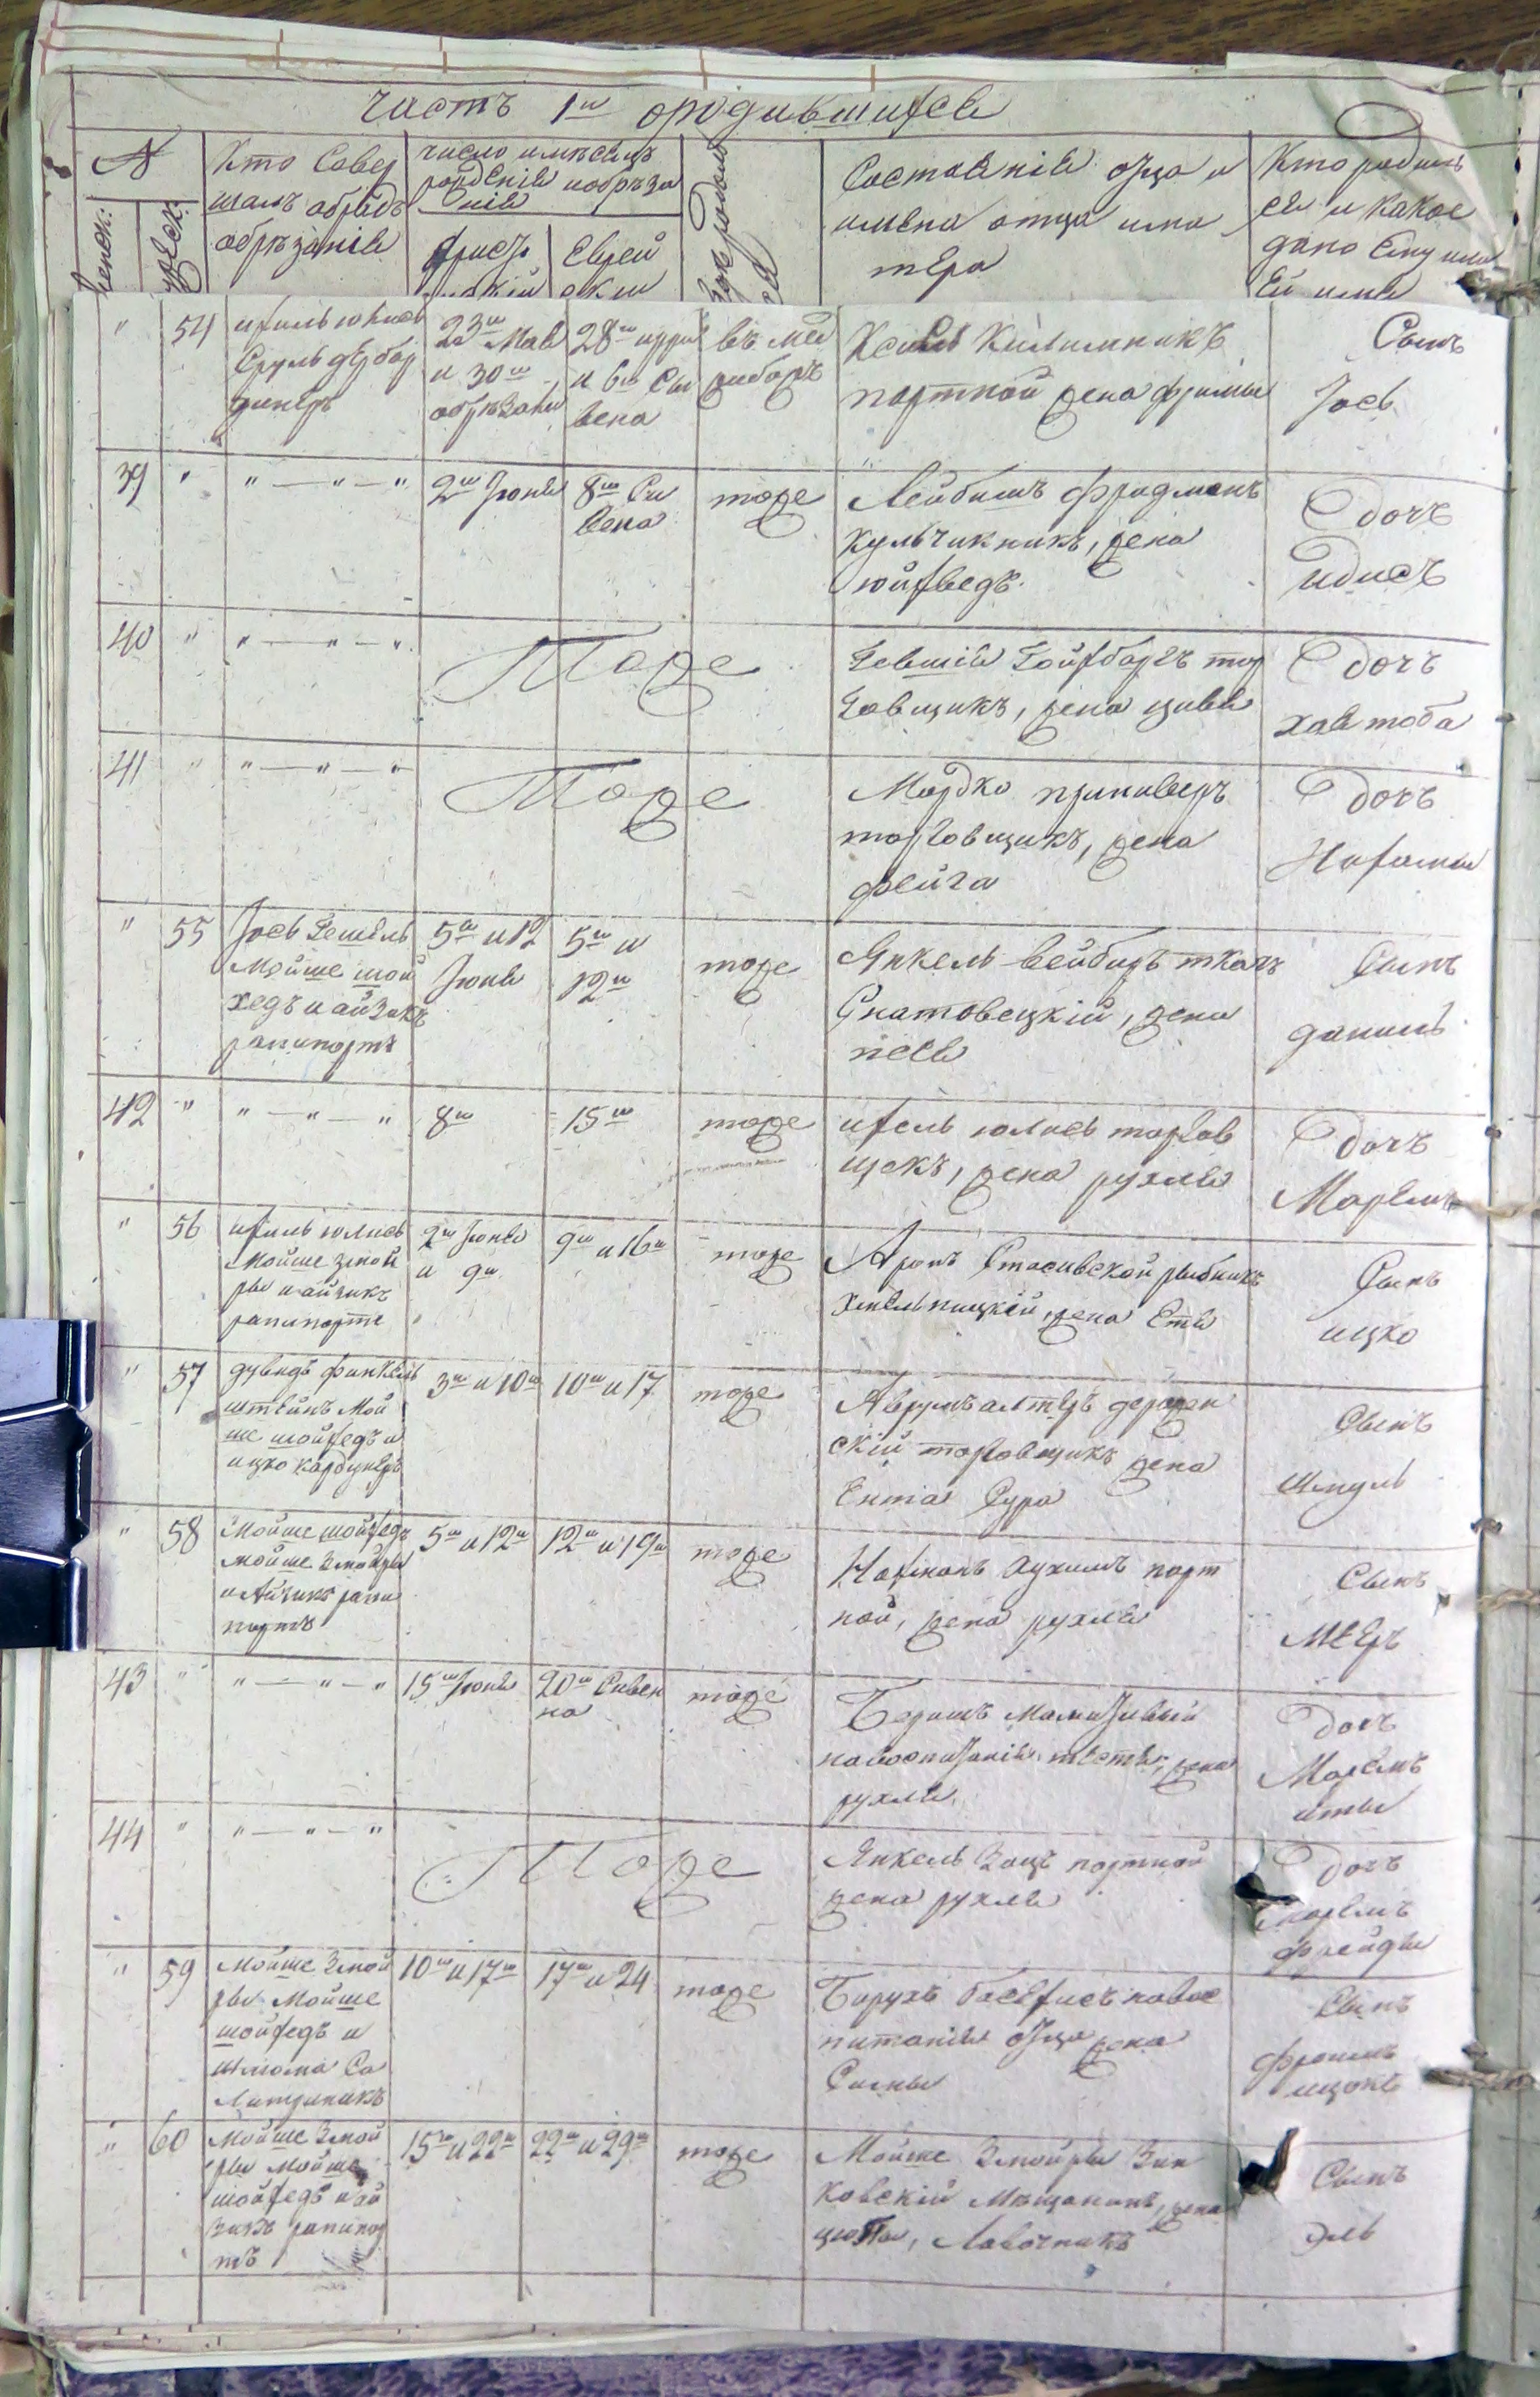 часть 1ая о родившихся
№
женск:
мужеск:
Кто Совер
шалъ обрядъ
обрѣзанія
число и мѣсяцъ
рожденія и обрѣза
нія
христі
анскій
Еврей
скій
Гдѣ родился
Состояніе отца и
имена отца и ма
тери
Кто родил
ся и какое
дано Ему или
Ей имя
" 54
ихиль юлисъ
Сруль
23го Мая
и 30го
обрѣзанъ
28го ияра
и 6го Си
вена
въ Мед
жибожѣ
Ксиль Килимникъ
портной жена фримы
Сынъ
Іосъ
39 " " — " — "
2го Іюня
8го Си
вена
тоже
Лейбишъ Фридманъ
кульчикникъ, жена
юйхведъ
дочь
идисъ
40 " " — " — "
Тоже
Гойхбаргъ тор
говщикъ, жена цивя
дочь
хая тоба
41 " " — " — "
Тоже
Мордко
торговщикъ, жена
фейга
дочь
Нехама
" 55
Іосъ Гешель
Мойше шой
хедъ и айзикъ
рапипортъ
5го и 12
Іюня
5го и
12го
тоже
Янкель вейберъ ткачъ
Снатовецкій, жена
песя
Сынъ
даниль
42 " " — " — "
8го
15го
тоже
ихель юлисъ торгов
щекъ, жена рухля
дочь
Марьемъ
" 56
ихиль юлисъ
Мойше змой
ры и айзикъ
рапипортъ
2го Іюня
и 9го
9го и 16го
тоже
Аронъ Стасивской рыбникъ
хмѣльницкій, жена Етя
Сынъ
ицко
" 57
дувидъ финкель
штейнъ Мой
ше шойхедъ и
ицко карбунеръ
3го и 10го
10го и 17
тоже
Аврумъ алтеръ деражен
скій торговщикъ жена
Ента Сура
Сынъ
Шмуль
" 58
Мойше шойхедъ
Мойше Змойры
и Айзикъ рапи
портъ
5го и 12го
12го и 19го
тоже
Нахманъ Аухимъ порт
ной, жена рухля
Сынъ
Мееръ
43 " " — " — "
15го Іюня
20го Сивен
на
тоже
Беришъ
на воспитаніи тестя, жена
рухля
дочь
Марьемъ
ита
44 " " — " — "
Тоже
Янкель Зацъ портной
жена рухля
дочь
Марьемъ
фрейда
" 59
Мойше Змой
ры Мойше
шойхедъ и
Шлиома Со
литерникъ
10го и 17го
17го и 24
тоже
Борухъ навос
питаніи отца жена
Симы
Сынъ
фроимъ
ицокъ
" 60
Мойше Змой
ры Мойше
шойхедъ и ай
зикъ рапипор
тъ
15го и 22го
22го и 29го
тоже
Мойше Змойры Зин
ковскій Мѣщанинъ, жена
ципы, Лавочникъ
Сынъ
эль